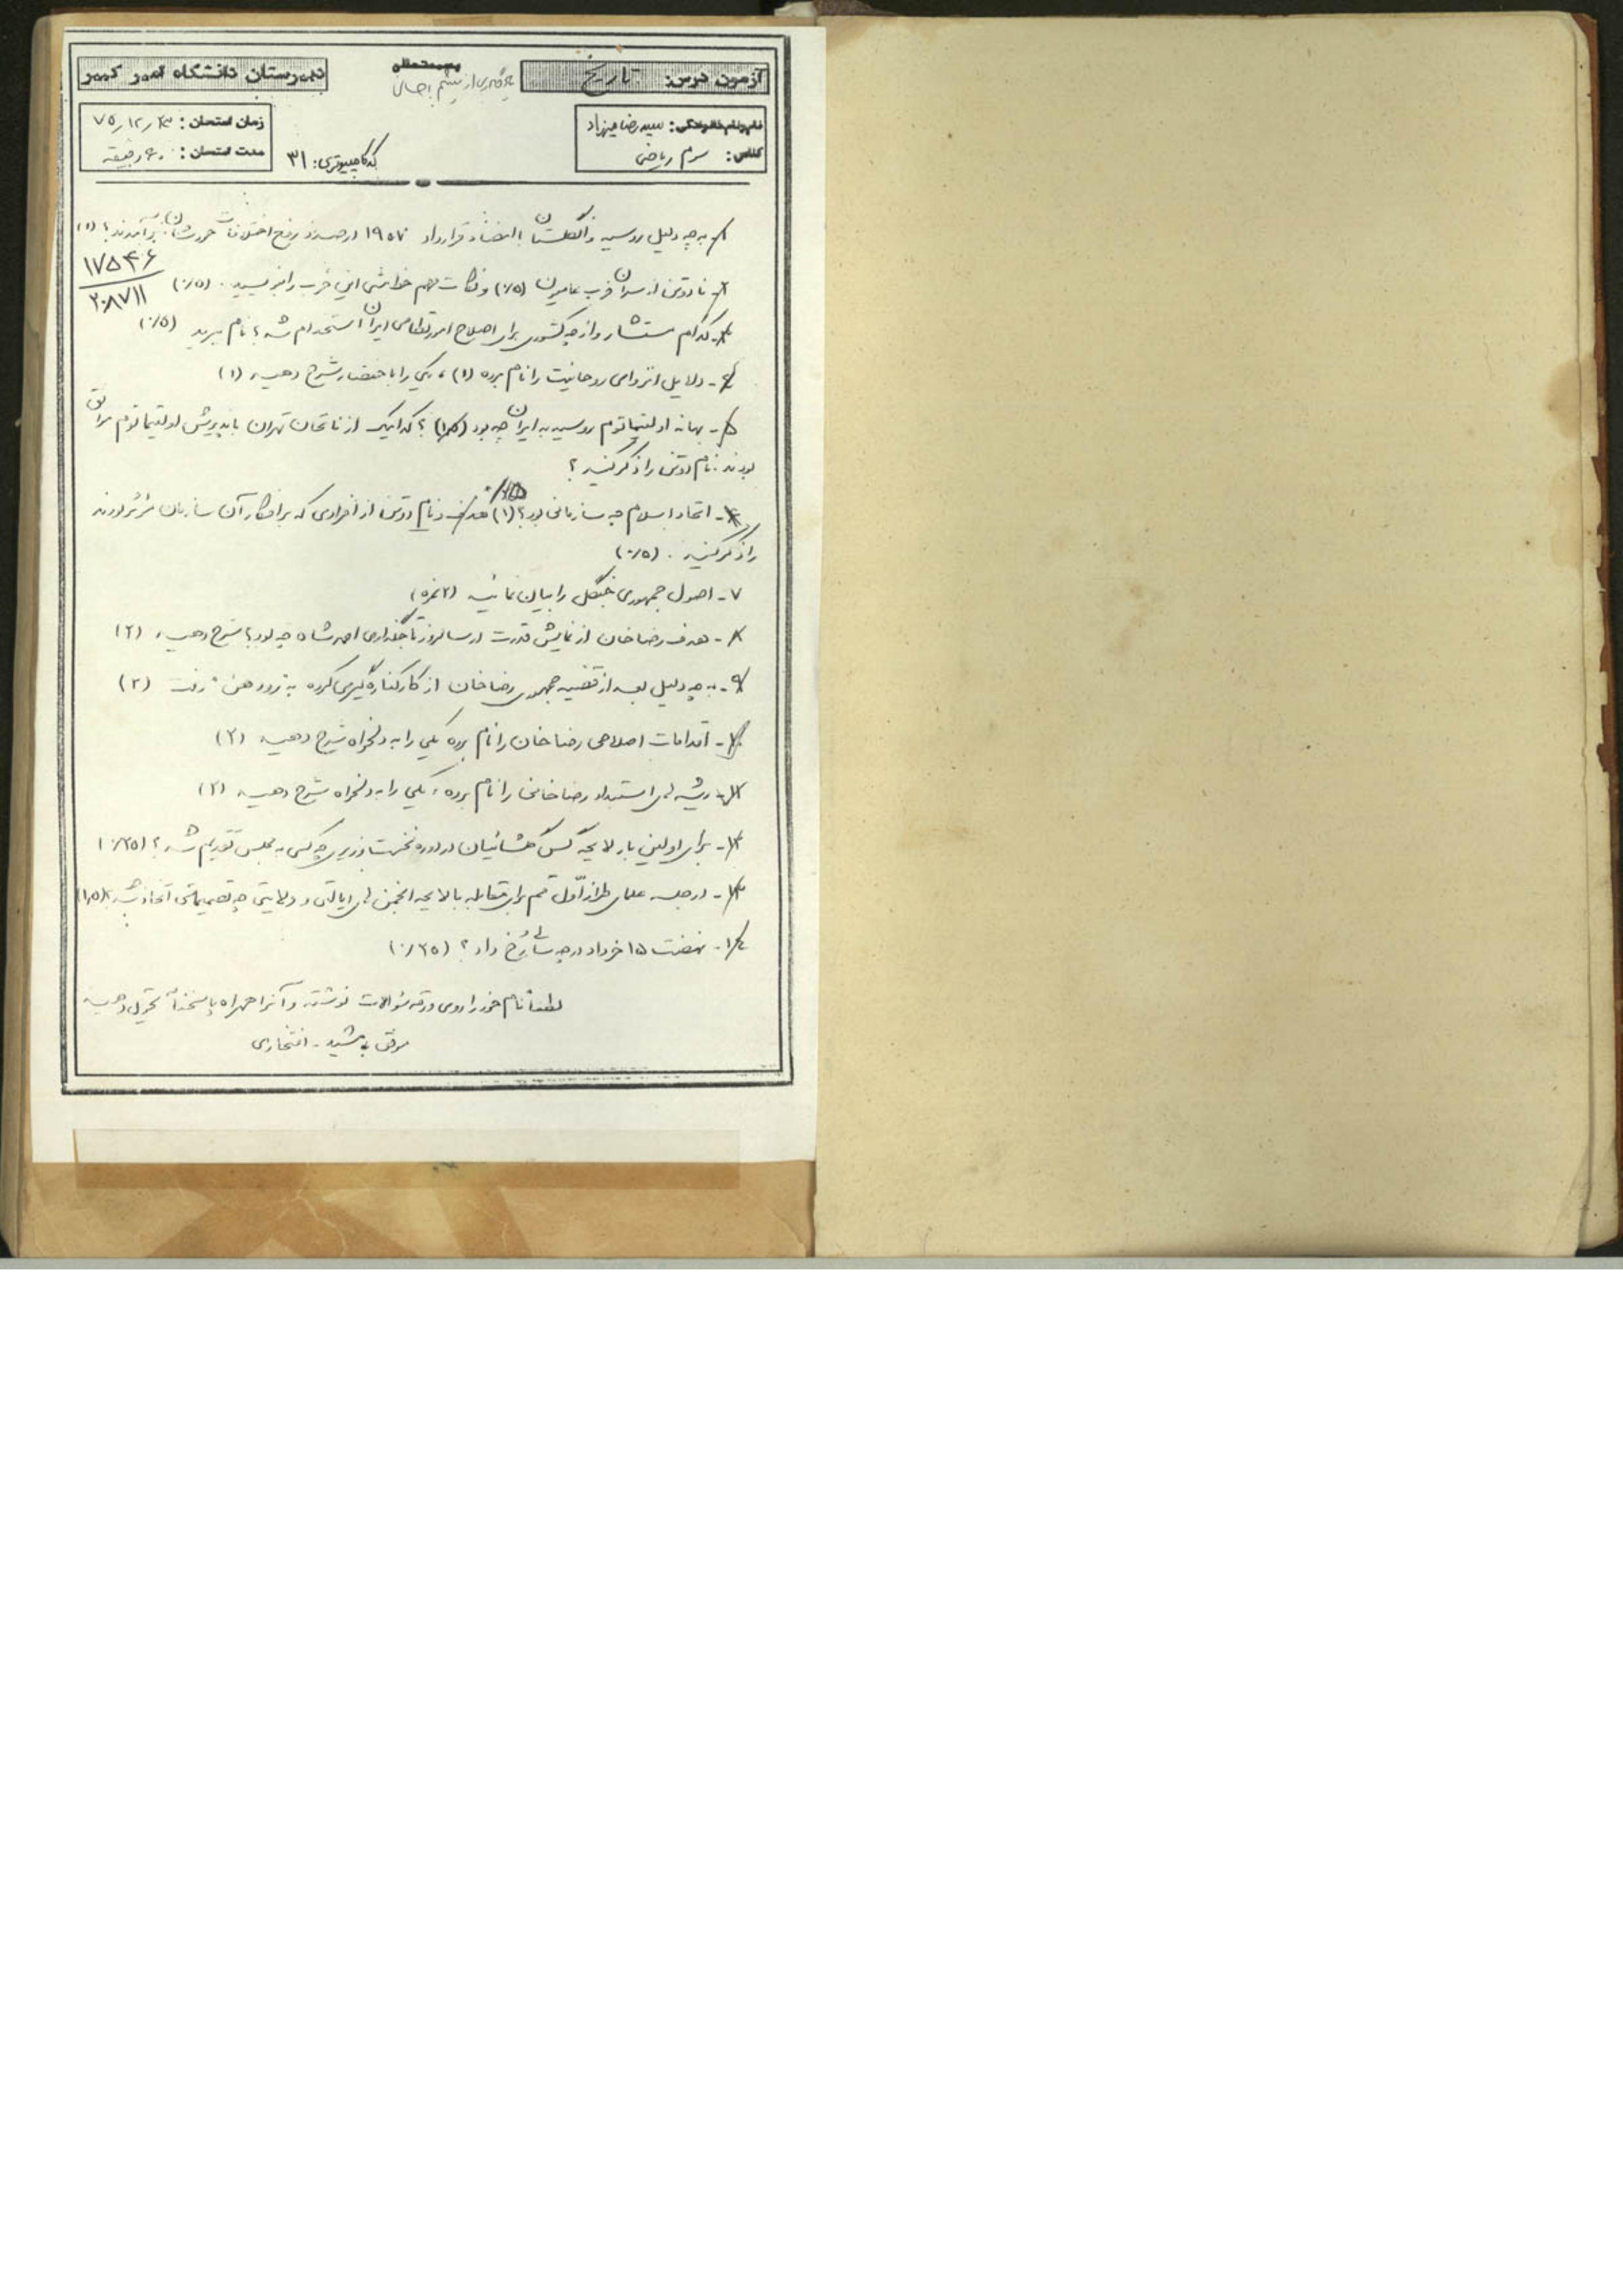 آزمون درس: تاریخ
بسمه‌تعالی
دبیرستان دانشگاه امیر کبیر
نام و نام خانوادگی: سید رضا میرزاد
کلاس: سوم ریاضی
کد کامپیوتری: ۳۱
زمان امتحان: ۷۵/۱۲/
مدت امتحان: ۶۰ دقیقه
۱- به چه دلیل روسیه و انگلستان با انعقاد قرارداد ۱۹۰۷ درصدد رفع اختلافات خودشان برآمدند؟ (۱)
۱۷۵۴۶
۲۰۸۷۱۱
۲- نام دو تن از سران حزب عامیون (۰/۵) و نکات مهم خط مشی این حزب را بنویسید. (۰/۵)
۳- کدام مستشار و از چه کشوری برای اصلاح امور نظامی ایران استخدام شد؟ نام ببرید (۰/۵)
۴- دلایل انزوای روحانیت را نام برده (۱)، یکی را باختصار شرح دهید (۱)
۵- بهانه اولتیماتوم روسیه به ایران چه بود ؟ کدامیک از فاتحان تهران با پذیرش اولتیماتوم موافق
بودند نام دو تن را ذکر کنید؟
۶- اتحاد اسلام چه سازمانی بود؟ (۱) و نام دو تن از افرادی که بر افکار آن سازمان مؤثر بودند
را ذکر کنید. (۰/۵)
۷- اصول جمهوری جنگل را بیان نمائید (۲ نمره)
۸- هدف رضاخان از نمایش قدرت در سالروز تاجگذاری احمدشاه چه بود؟ شرح دهید (۲)
۹- به چه دلیل بعد از قضیه جمهوری رضاخان از کار کناره گیری کرده به رودهن رفت (۲)
۱۰- اقدامات اصلاحی رضاخان را نام برده یکی را به دلخواه شرح دهید (۲)
۱۱- ریشه های استبداد رضاخانی را نام برده، یکی را به دلخواه شرح دهید (۲)
۱۲- برای اولین بار لایحه گس گلشائیان در دوره نخست وزیری چه کسی به مجلس تقدیم شد؟ (۰/۲۵)
۱۳- در جلسه علمای طراز اول قم برای مقابله با لایحه انجمن های ایالتی و ولایتی چه تصمیماتی اتخاذ شد؟ (۱/۵)
۱۴- نهضت ۱۵ خرداد در چه سالی رخ داد؟ (۰/۲۵)
لطفاً نام خود را روی ورقه سؤالات نوشته و آنرا همراه پاسخنامه تحویل دهید
موفق باشید - افتخاری